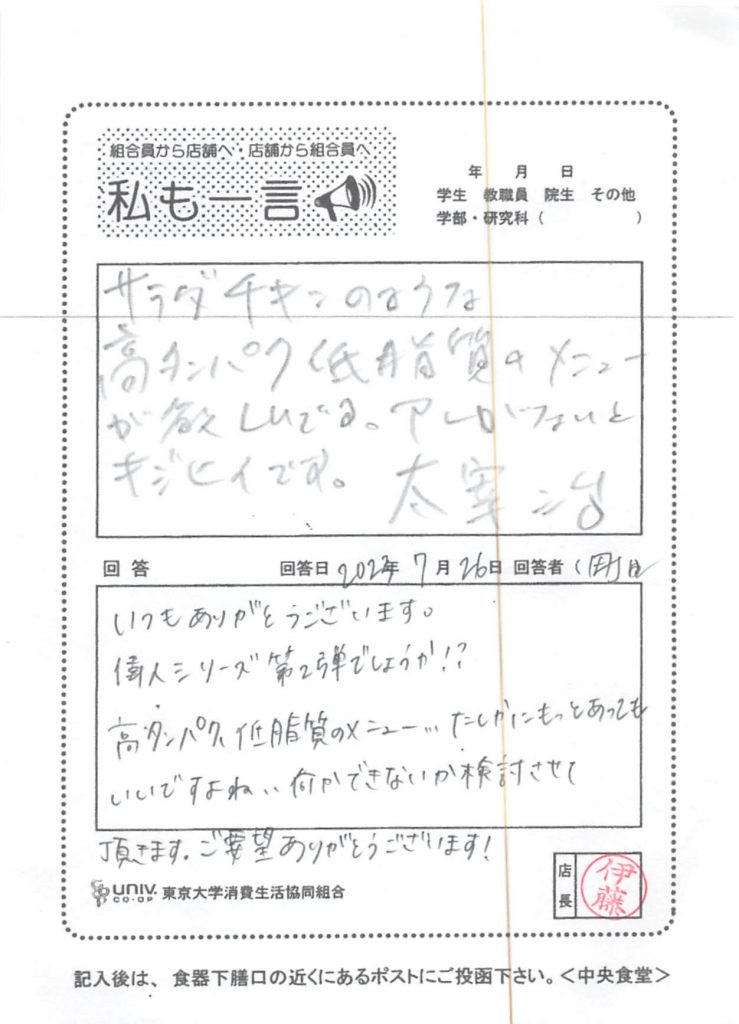 組合員から店舗へ・店舗から組合員へ
私も一言
年 月 日
学生 教職員 院生 その他
学部・研究科（ ）
サラダチキンのような
高タンパク低脂質のメニュー
が欲しいです。アレがないと
キジヒイです。 太宰治
回答 回答日 2022年 7月26日 回答者（
いつもありがとうございます。
偉人シリーズ第2弾でしょうか!?
高タンパク、低脂質のメニュー… たしかにもっとあっても
いいですよね、、何かできないか検討させて
頂きます。ご要望ありがとうございます!
UNIV. CO-OP 東京大学消費生活協同組合
店長 伊藤
記入後は、食器下膳口の近くにあるポストにご投函下さい。＜中央食堂＞